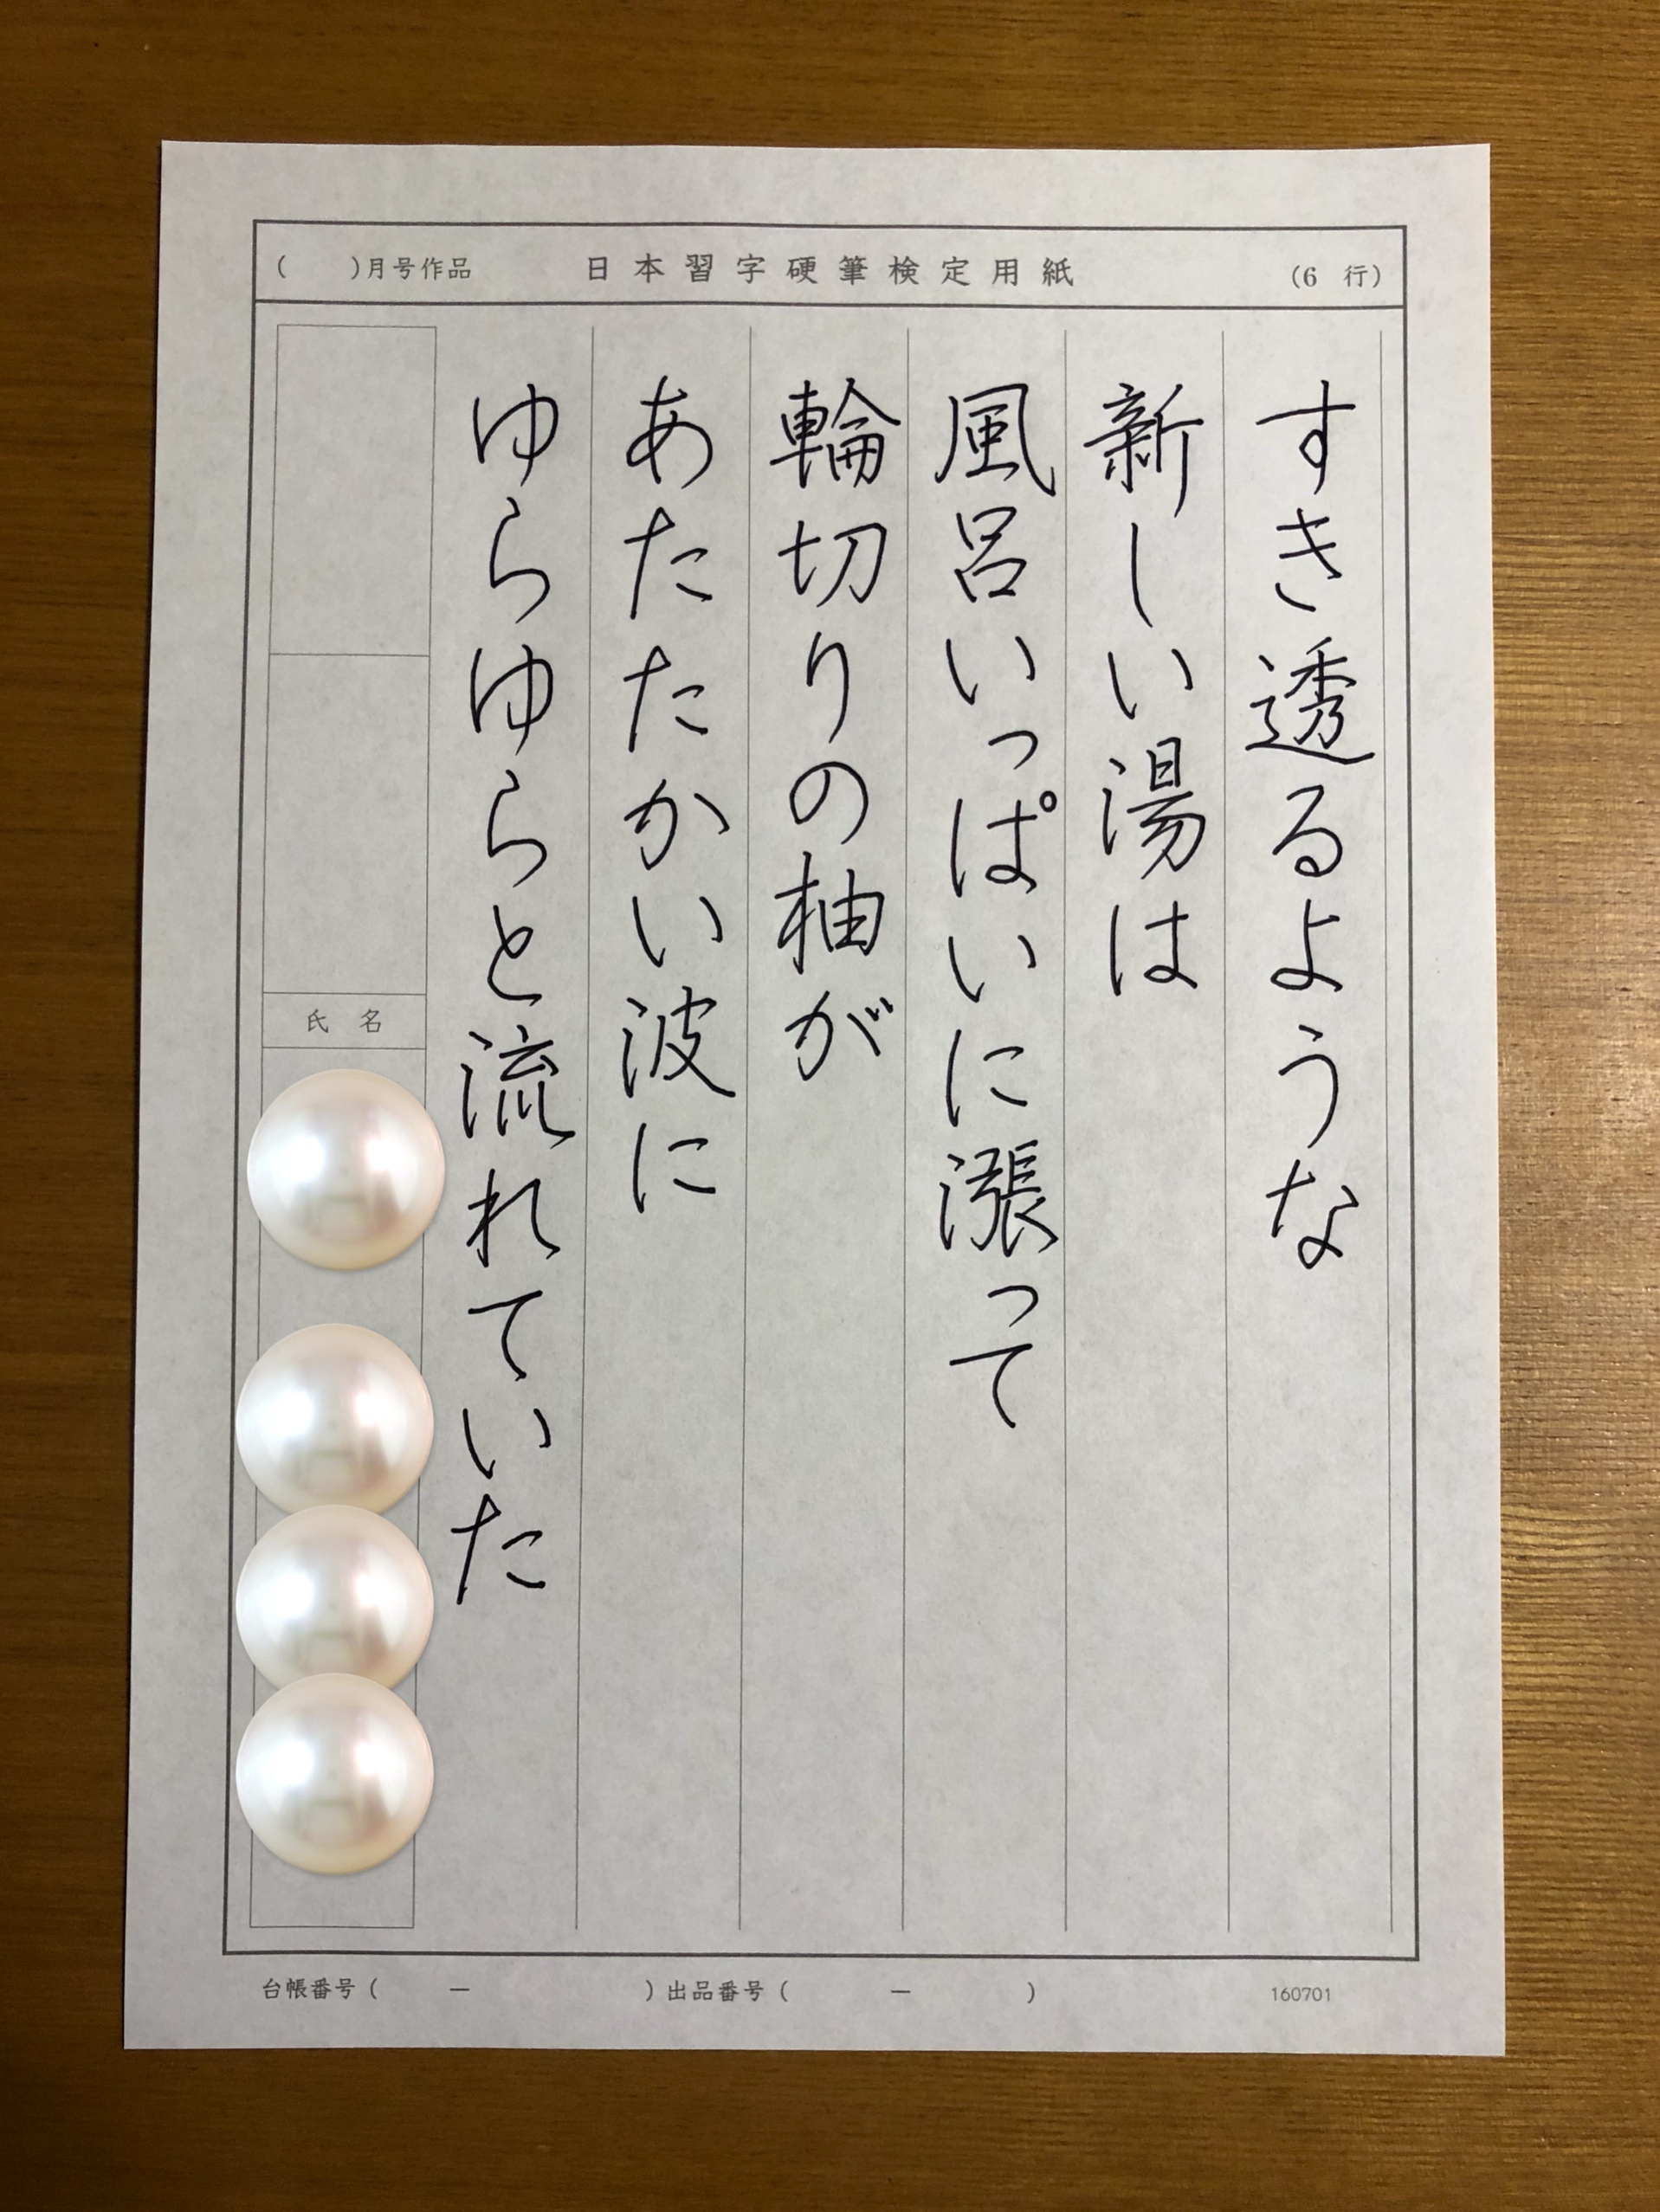 ( )月号作品 日本習字硬筆検定用紙 (6 行)
すき透るような
新しい湯は
風呂いっぱいに漲って
輪切りの柚が
あたたかい波に
ゆらゆらと流れていた
氏 名
台帳番号( － )出品番号( － ) 160701